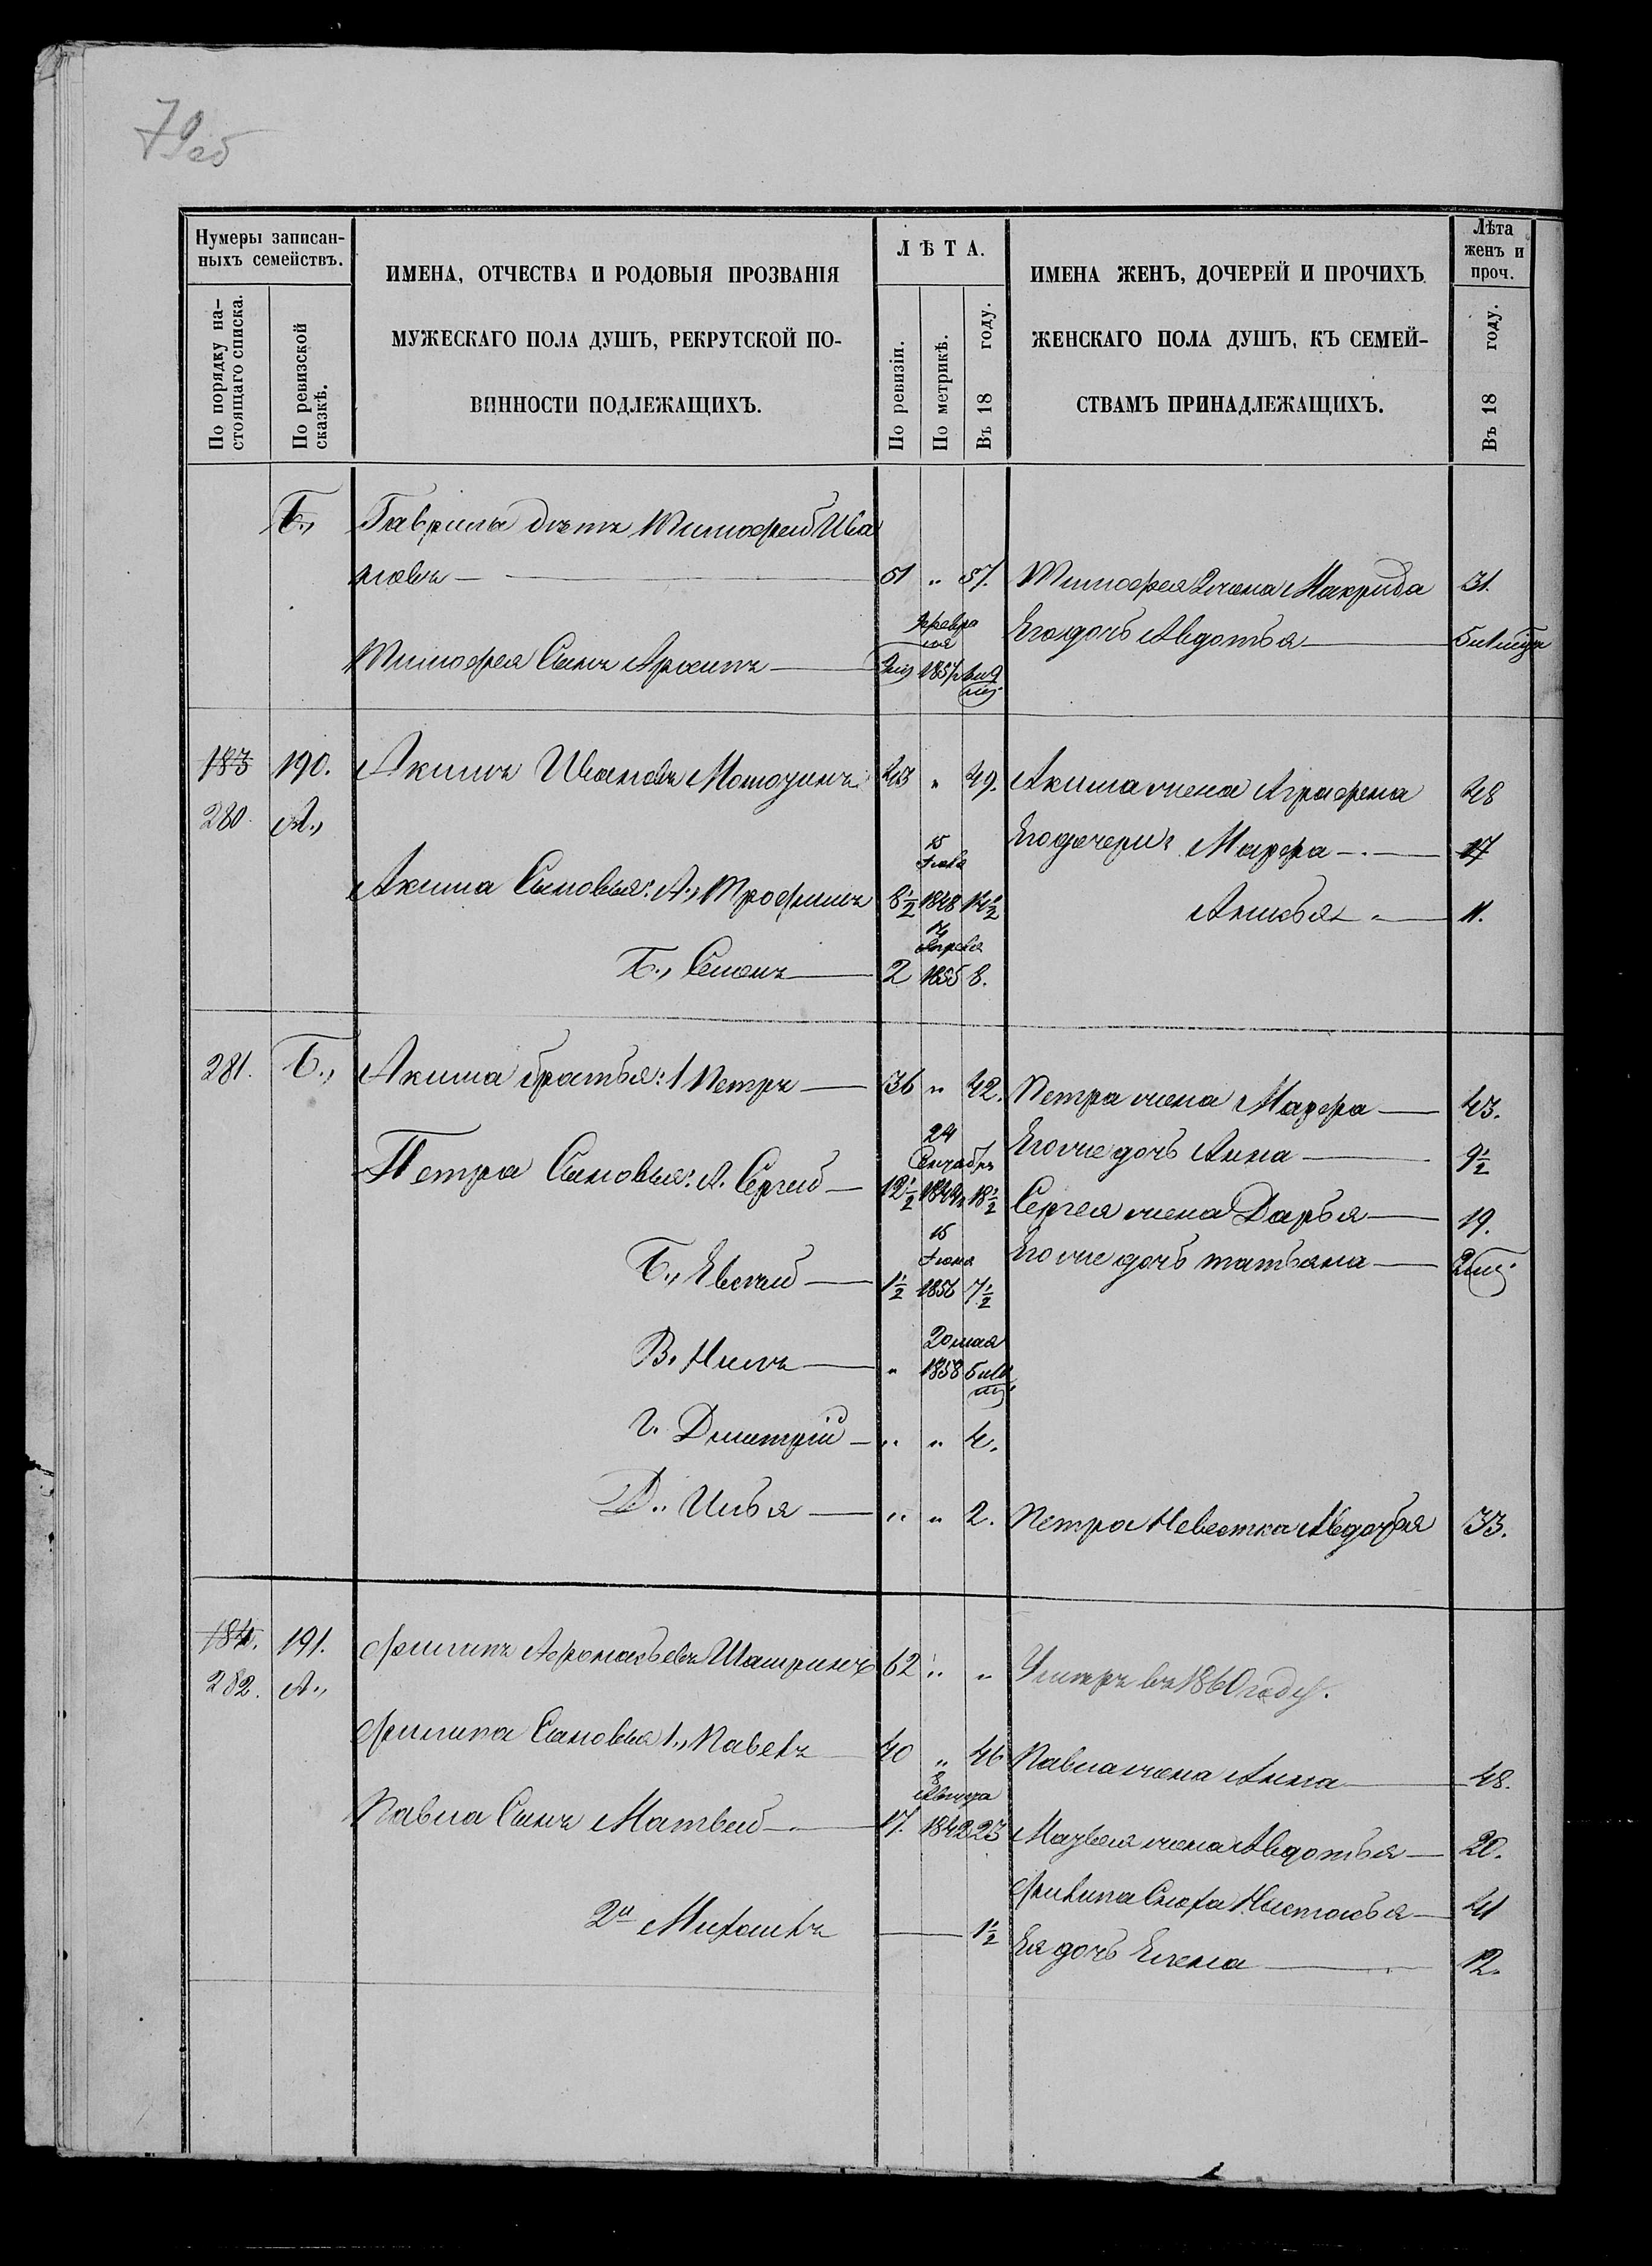 79об
Нумеры записан-
ныхъ семействъ.
По порядку на-
стоящаго списка.
По ревизской
сказкѣ.
ИМЕНА, ОТЧЕСТВА И РОДОВЫЯ ПРОЗВАНІЯ
МУЖЕСКАГО ПОЛА ДУШЪ, РЕКРУТСКОЙ ПО-
ВИННОСТИ ПОДЛЕЖАЩИХЪ.
ЛѢТА.
По ревизіи.
По метрикѣ.
Въ 18 году.
ИМЕНА ЖЕНЪ, ДОЧЕРЕЙ И ПРОЧИХЪ
ЖЕНСКАГО ПОЛА ДУШЪ, КЪ СЕМЕЙ-
СТВАМЪ ПРИНАДЛЕЖАЩИХЪ.
Лѣта
женъ и
проч.
Въ 18 году.
Б., Гаврилы Тимофей Ива
новъ — 51 " 57. Тимофея 2 жена Макрида 31.
Февра
ля
Его дочь Авдотья —
Тимофея Сынъ Архипъ — 1857
183 190. Акимъ Ивановъ 43 " 49. Акима жена Аграфена 48
280 А.,
15
Его дочери: Марфа — 17
Акима Сыновья: А., Трофимъ 8½ 1848 14½
Анисья — 11.
14
Апреля
Б., Семенъ — 2 1855 8.
281. Б., Акима братья: 1 Петръ — 36 " 42. Петра жена Марфа — 43.
24
Сентабръ
Его же дочь Анна — 9½
Петра Сыновья: А. Сергей — 12½ 1844 18½
Сергея жена Дарья — 19.
15
Іюня
Его же дочь татьяна —
Б., Евсей — 1½ 1856 7½
20 мая
В. Нилъ — " 1858
Г. Дмитрій — " " 4.
Д. Илья — " " 2. Петра Невестка Авдотья 33.
184. 191. Филипъ Шашринъ 62 " " Умеръ въ 1860 году.
282. А.,
Филипа Сыновья 1., Павелъ 40 " 46 Павла жена Анна — 48.
8
Августа
Павла Сынъ Матвей — 17. 1842 23 Матвея жена Авдотья — 20.
Филипа Сноха Настасья — 41
2й Михаилъ — 1½
Ея дочь Елена — 12.